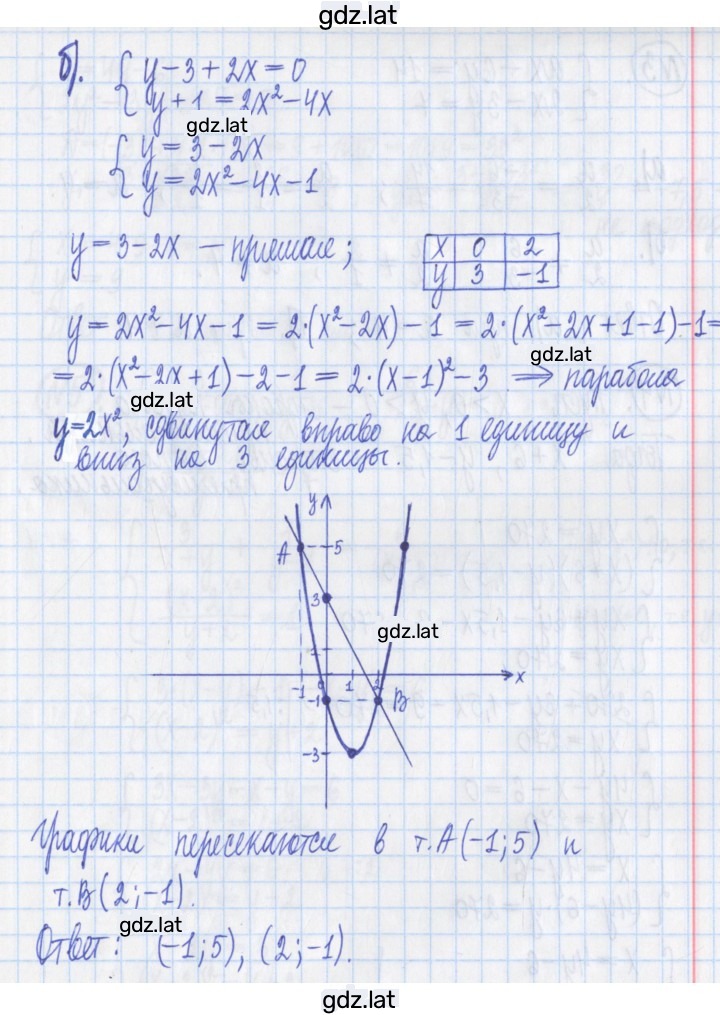 gdz.lat
б). { y - 3 + 2x = 0
y + 1 = 2x² - 4x
gdz.lat
{ y = 3 - 2x
y = 2x² - 4x - 1
y = 3 - 2x — прямая;
x 0 2
y 3 -1
y = 2x² - 4x - 1 = 2·(x² - 2x) - 1 = 2·(x² - 2x + 1 - 1) - 1 =
gdz.lat
= 2·(x² - 2x + 1) - 2 - 1 = 2·(x - 1)² - 3 ⟹ парабола
gdz.lat
y=2x², сдвинутая вправо на 1 единицу и
вниз на 3 единицы.
y
A 5
3
gdz.lat
1
-1 0 1 2 x
-1 B
-3
Графики пересекаются в т. A (-1; 5) и
т. B (2; -1).
gdz.lat
Ответ: (-1; 5), (2; -1).
gdz.lat